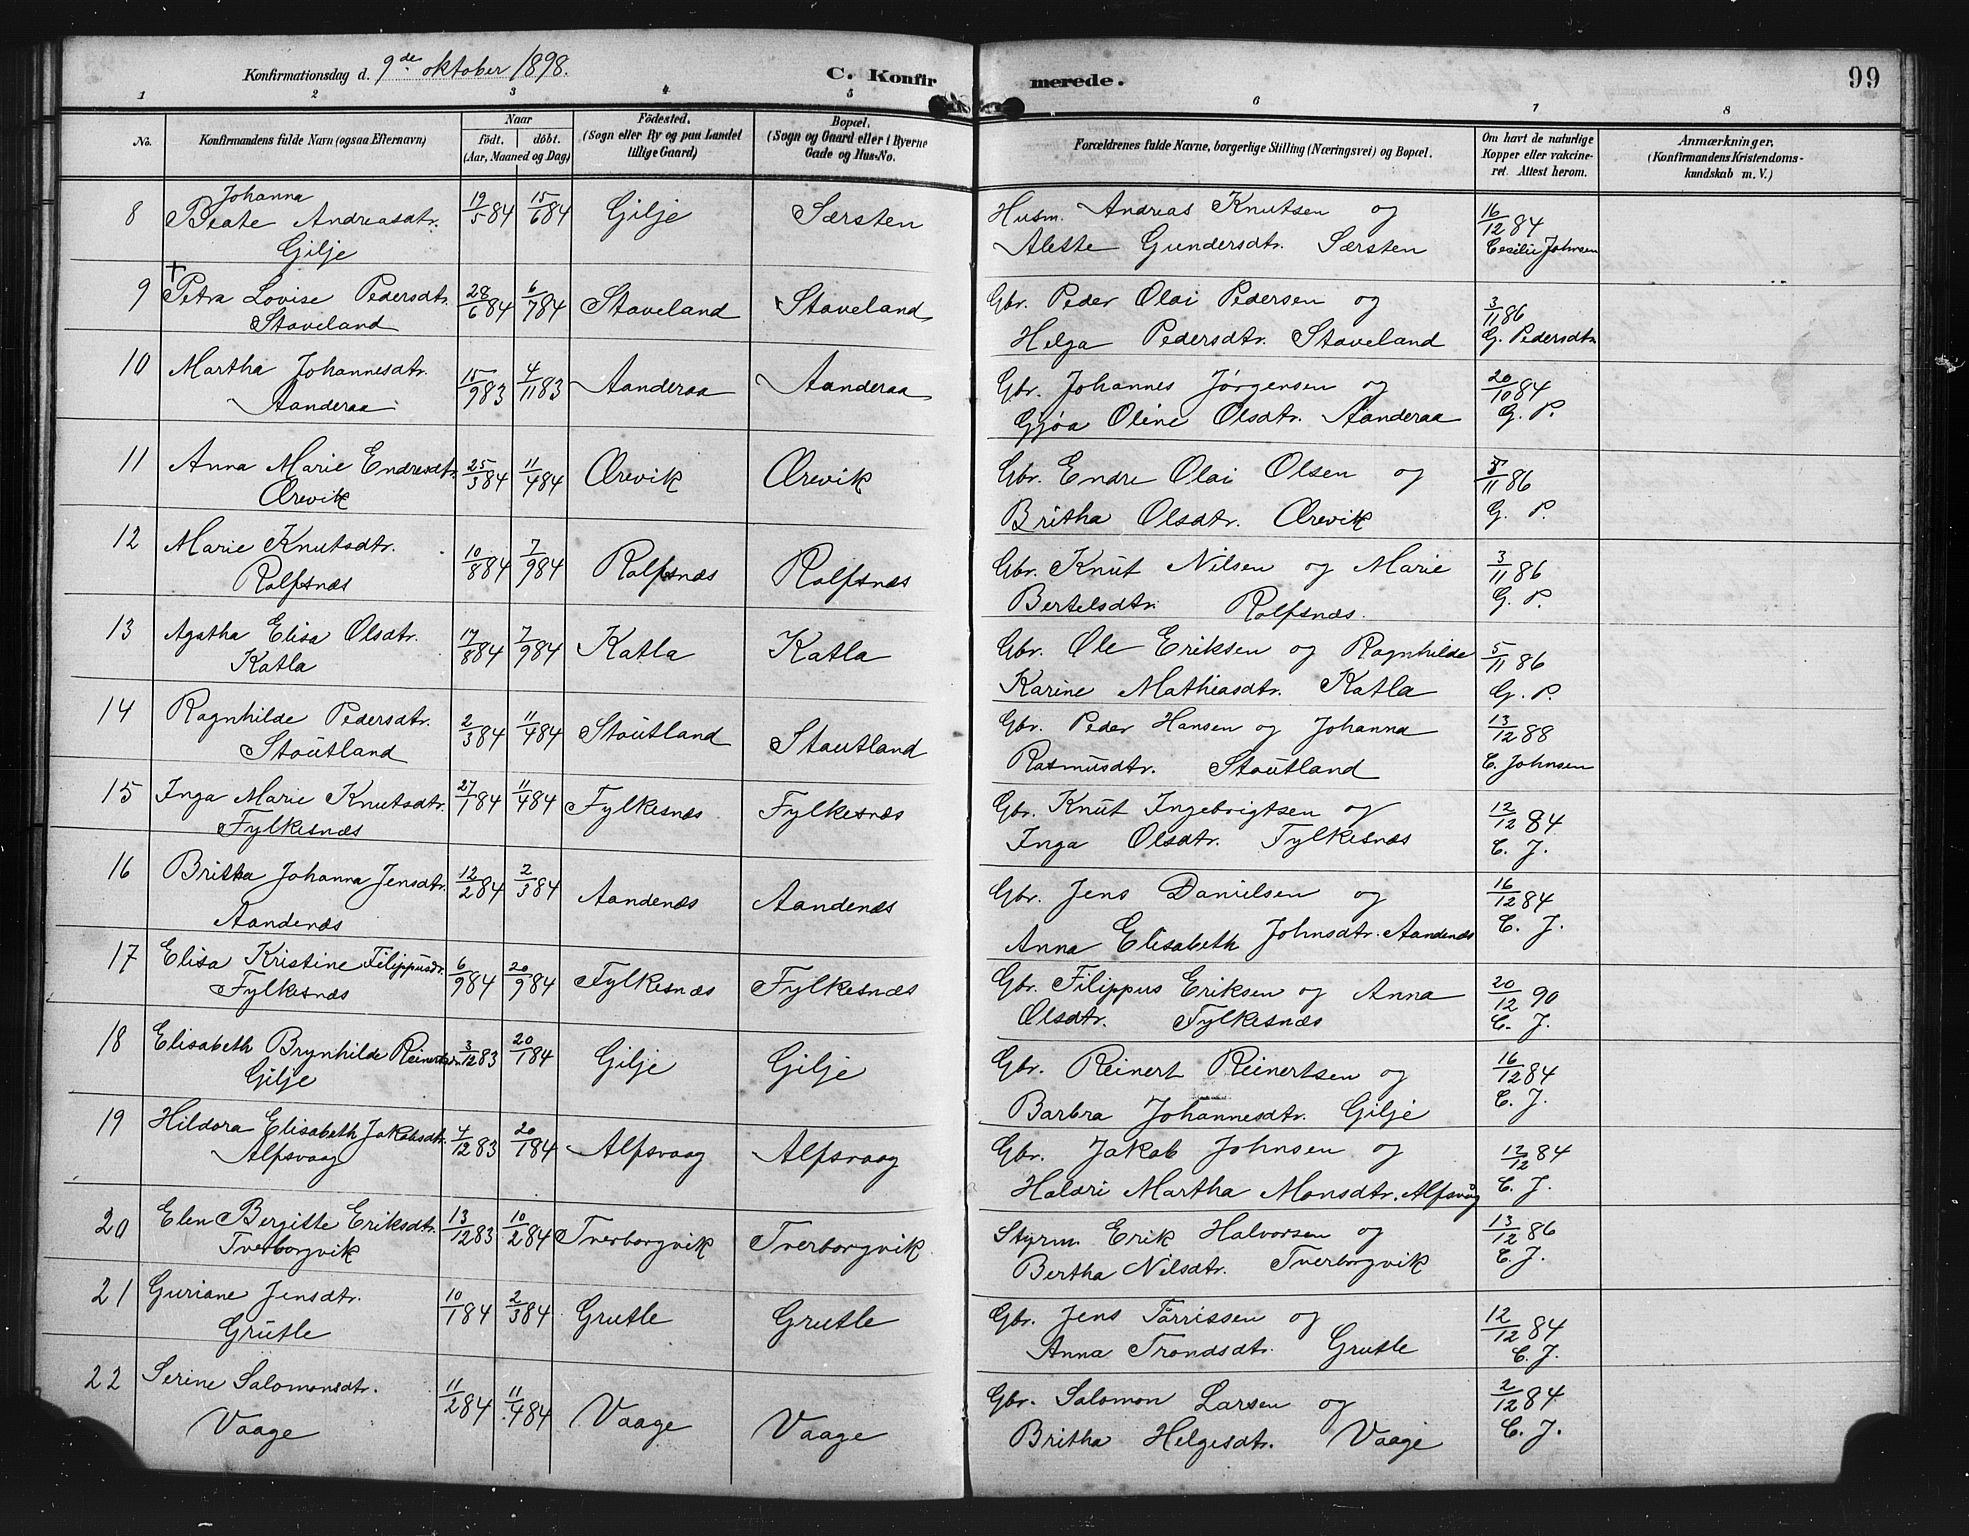 Konfirmationsdag d. 9de oktober 1898.
C. Konfirmerede.
99
1 2 3 4 5 6 7 8
No.
Konfirmandens fulde Navn (ogsaa Efternavn)
Naar
födt. döbt.
(Aar, Maaned og Dag)
Födested.
(Sogn eller By og paa Landet
tillige Gaard)
Bopæl.
(Sogn og Gaard eller i Byerne
Gade og Hus-No.
Forældrenes fulde Navne, borgerlige Stilling (Næringsvei) og Bopæl.
Om havt de naturlige
Kopper eller vakcine-
ret. Attest herom.
Anmærkninger.
(Konfirmandens Kristendoms-
kundskab m. V.)
Johanna
8 Beate Andreasdtr. 19/5 84 15/6 84 Gilje Særsten Husm. Andreas Knutsen og 16/12 84
Gilje Alette Gundersdtr. Særsten Cecilie Johnsen
†
9 Petra Lovise Pedersdtr. 28/6 84 6/7 84 Staveland Staveland Gbr. Peder Olai Pedersen og 3/11 86
Staveland Helga Pedersdtr. Staveland G. Pedersdtr.
10 Martha Johannesdtr. 15/9 83 4/11 83 Aanderaa Aanderaa Gbr. Johannes Jørgensen og 20/10 84
Aanderaa Gjøa Oline Olsdtr. Aanderaa G. P.
11 Anna Marie Endresdtr. 25/3 84 11/4 84 Ørevik Ørevik Gbr. Endre Olai Olsen og 5/11 86
Ørevik Britha Olsdtr. Ørevik G. P.
12 Marie Knutsdtr. 10/8 84 7/9 84 Rolfsnæs Rolfsnæs Gbr. Knut Nilsen og Marie 3/11 86
Rolfsnæs Bertelsdtr. Rolfsnæs. G. P.
13 Agatha Elisa Olsdtr. 17/8 84 7/9 84 Katla Katla Gbr. Ole Eriksen og Ragnhilde 5/11 86
Katla Karine Mathiasdtr. Katla G. P.
14 Ragnhilde Pedersdtr. 2/3 84 11/4 84 Stoutland Stoutland Gbr. Peder Hansen og Johanna 13/12 88
Stoutland Rasmusdtr. Stoutland C. Johnsen
15 Inga Marie Knutsdtr. 27/1 84 11/4 84 Fylkesnæs Fylkesnæs Gbr. Knut Ingebrigtsen og 12/12 84
Fylkesnæs Inga Olsdtr. Fylkesnæs C. J.
16 Britha Johanna Jensdtr. 12/2 84 2/3 84 Aandenæs Aandenæs Gbr. Jens Danielsen og 16/12 84
Aandenæs Anna Elisabeth Johnsdtr. Aandenæs C. J.
17 Elisa Kristine Filippusdr. 6/9 84 20/9 84 Fylkesnæs Fylkesnæs Gbr. Filippus Eriksen og Anna 20/12 90
Fylkesnæs Olsdtr. Fylkesnæs C. J.
18 Elisabeth Brynhilde Reinertsdtr. 3/12 83 20/1 84 Gilje Gilje Gbr. Reinert Reinertsen og 16/12 84
Gilje Barbra Johannesdtr. Gilje C. J.
19 Hildora Elisabeth Jakobsdtr. 4/12 83 20/1 84 Alfsvaag Alfsvaag Gbr. Jakob Johnsen og 12/12 84
Alfsvaag Haldri Martha Monsdtr. Alfsvåg C. J.
20 Elen Bergitte Eriksdtr. 13/12 83 10/2 84 Tverborgvik Tverborgvik Styrm. Erik Halvorsen og 13/12 86
Tverborgvik Bertha Nilsdtr. Tverborgvik C. J.
21 Guriane Jensdtr. 10/1 84 2/3 84 Grutle Grutle Gbr. Jens Tørrissen og 12/12 84
Grutle Anna Trondsdtr. Grutle C. J.
22 Serine Salomonsdtr. 11/2 84 11/4 84 Vaage Vaage Gbr. Salomon Larsen og 2/12 84
Vaage Britha Helgesdtr. Vaage C. J.